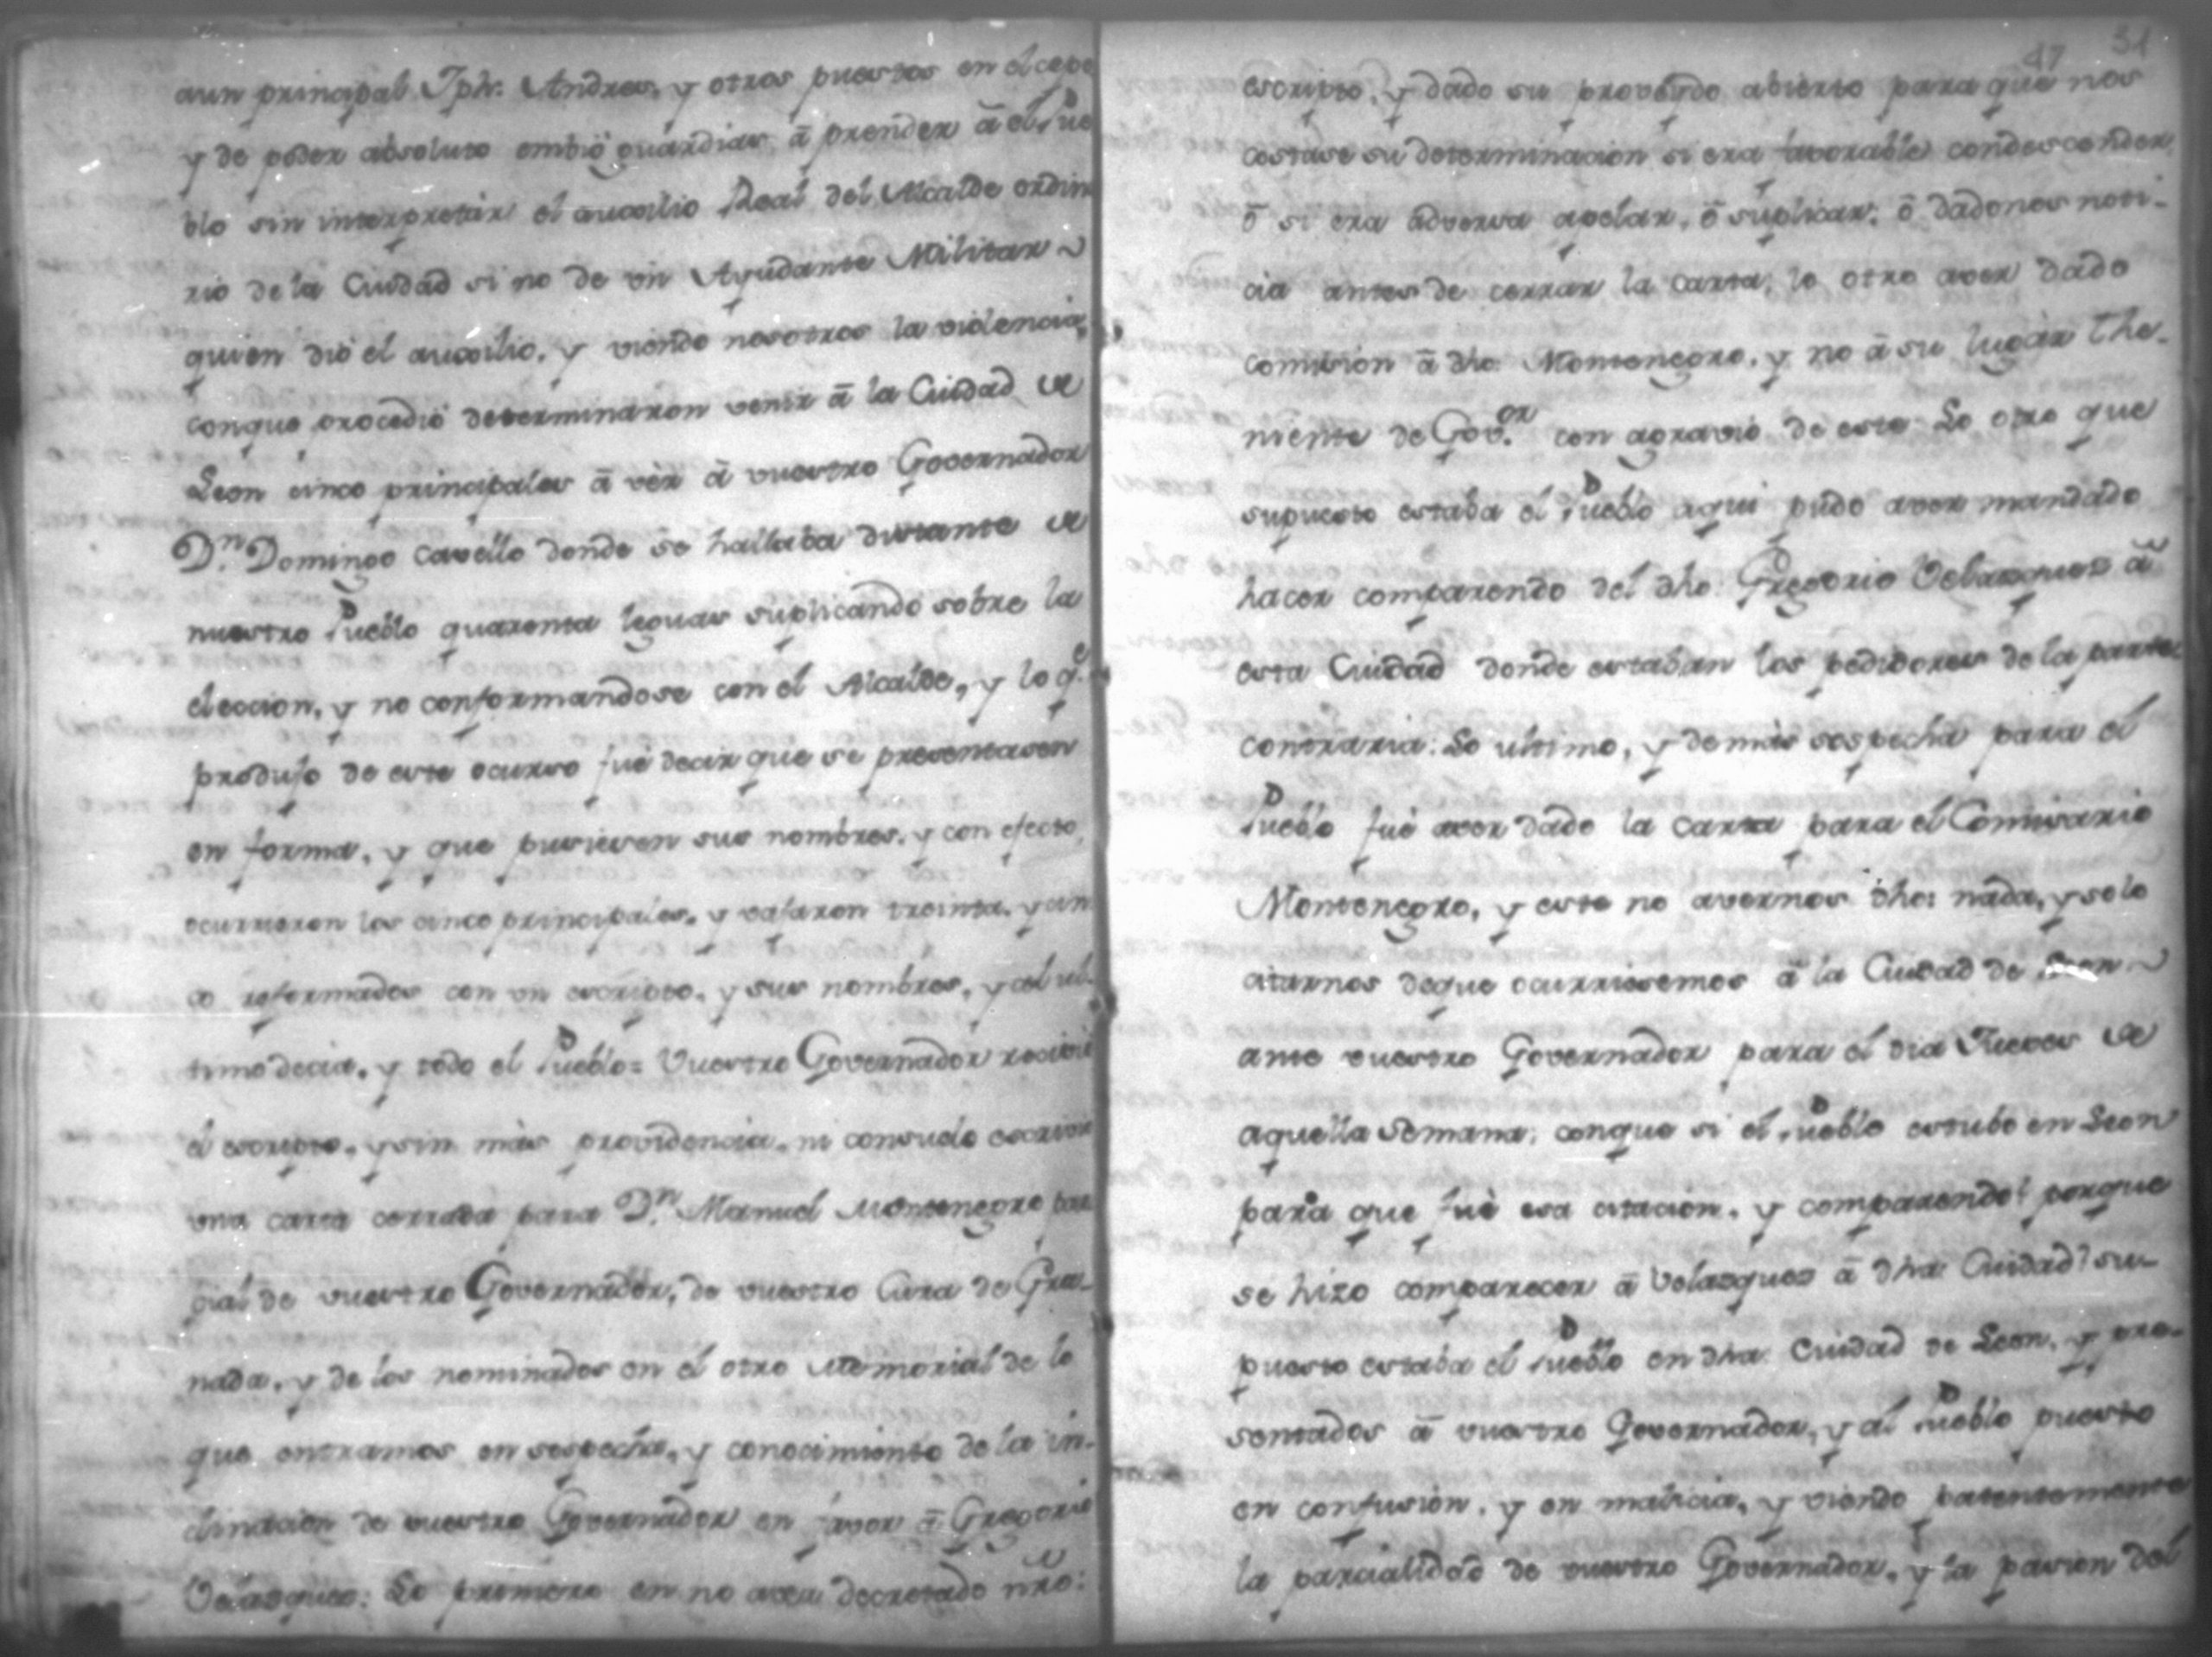 aun principal Jph. Andres, y otros puestos en el cepo
y de poder absoluto embiò guardias à prender à el Pue
blo sin interpretàr el auxilio Real del Alcalde ordin
rio de la Ciudad si no de ùn Ayudante Militar
quien diò el auxilio, y viendo nosotros la violencia,
conque procediò determinaron venir à la Ciudad de
Leon cinco principales à vèr à vuestro Governador
D.n Domingo Cavello donde se hallaba distante de
nuestro Pueblo quarenta leguas suplicando sobre la
eleccion, y no conformandose con el Alcalde, y lo q.e
produjo de este ocurso fuè decir que se presentasen
en forma, y que pusiesen sus nombres, y con efecto,
ocurrieron los cinco principales, y bajaron treinta, y cin
co reformados con un escripto, y sus nombres, y al ul-
timo decia, y todo el Pueblo= Vuestro Governador reciviò
el escripto, y sin màs providencia, ni consuelo escriviò
una carta cerrada para D.n Manuel Montenegro par
cial de vuestro Governador, de vuestro Cura de Gra-
nada, y de los nominados en el otro Memorial de lo
que entramos en sospecha, y conocimiento de la in-
clinacion de vuestro Governador en favor à Gregorio
Velasques: Lo primero en no aver decretado nro:
47 51
escripto, y dado su proveydo abierto para que nos
costase su determinacion si era favorable condescender
ò si era adversa apelar, ò suplicar, ò dadonos noti-
cia antes de cerrar la carta, lo otro aver dado
comision à dho. Montenegro, y no à su lugàr The-
niente de Gov.or con agravio de este Lo otro que
supuesto estaba el Pueblo aqui pudo aver mandado
hacer comparendo del dho. Gregorio Velasques à
esta Ciudad donde estaban los pedidores de la parte
contraria: Lo ultimo, y de màs sospecha para el
Pueblo fuè aver dado la carta para el Comisario
Montenegro, y este no avernos dho: nada, y solo
citarnos deque ocurriesemos à la Ciudad de Leon
ante vuestro Governador para el dia Jueves de
aquella Semana, conque si el Pueblo estubo en Leon
para que fuè esa citacion, y comparendo? porque
se hizo comparecer à Velasques à dha: Ciudad? su-
puesto estaba el Pueblo en dha. Ciudad de Leon, y pre-
sentados à vuestro Governador, y al Pueblo puesto
en confusion, y en malicia, y viendo patentemente
la parcialidad de vuestro Governador, y la pasion del